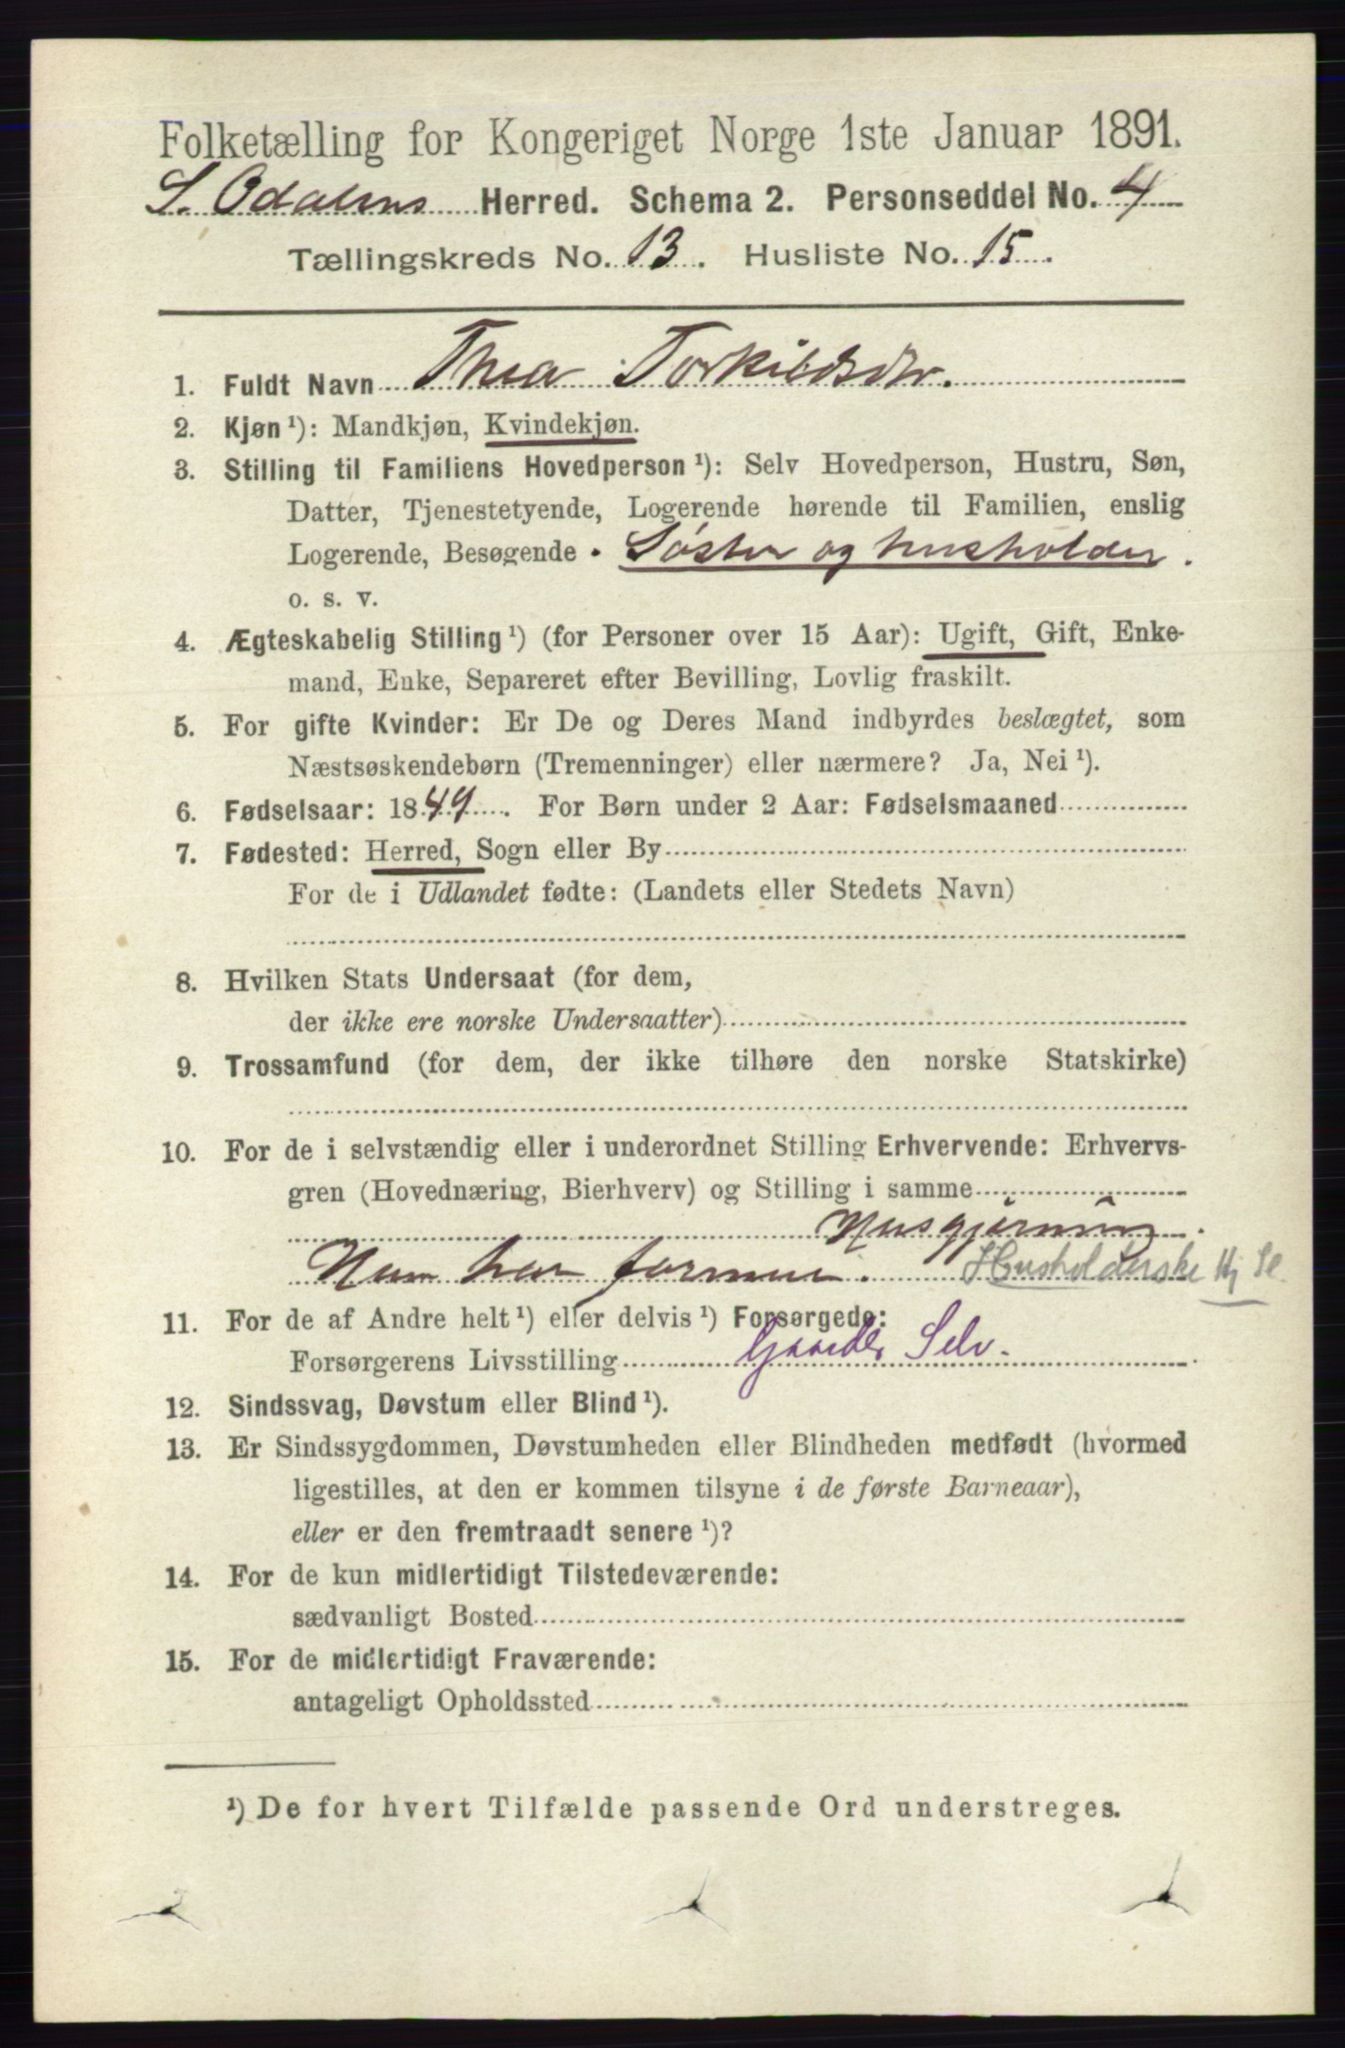 Folketælling for Kongeriget Norge 1ste Januar 1891.
S. Odalens Herred. Schema 2. Personseddel No. 4
Tællingskreds No. 13. Husliste No. 15.
1. Fuldt Navn Thea Torkildsdtr.
2. Kjøn ¹): Mandkjøn, Kvindekjøn.
3. Stilling til Familiens Hovedperson ¹): Selv Hovedperson, Hustru, Søn,
Datter, Tjenestetyende, Logerende hørende til Familien, enslig
Logerende, Besøgende · Søster og husholder.
o. s. v.
4. Ægteskabelig Stilling ¹) (for Personer over 15 Aar): Ugift, Gift, Enke-
mand, Enke, Separeret efter Bevilling, Lovlig fraskilt.
5. For gifte Kvinder: Er De og Deres Mand indbyrdes beslægtet, som
Næstsøskendebørn (Tremenninger) eller nærmere? Ja, Nei ¹).
6. Fødselsaar: 1849. For Børn under 2 Aar: Fødselsmaaned
7. Fødested: Herred, Sogn eller By
For de i Udlandet fødte: (Landets eller Stedets Navn)
8. Hvilken Stats Undersaat (for dem,
der ikke ere norske Undersaatter)
9. Trossamfund (for dem, der ikke tilhøre den norske Statskirke)
10. For de i selvstændig eller i underordnet Stilling Erhvervende: Erhvervs-
gren (Hovednæring, Bierhverv) og Stilling i samme
Husgjerning.
Hun har formue. Husholderske Hj Sl
11. For de af Andre helt ¹) eller delvis ¹) Forsørgede:
Forsørgerens Livsstilling Gaardbr Selv.
12. Sindssvag, Døvstum eller Blind ¹).
13. Er Sindssygdommen, Døvstumheden eller Blindheden medfødt (hvormed
ligestilles, at den er kommen tilsyne i de første Barneaar),
eller er den fremtraadt senere ¹)?
14. For de kun midlertidigt Tilstedeværende:
sædvanligt Bosted
15. For de midlertidigt Fraværende:
antageligt Opholdssted
¹) De for hvert Tilfælde passende Ord understreges.